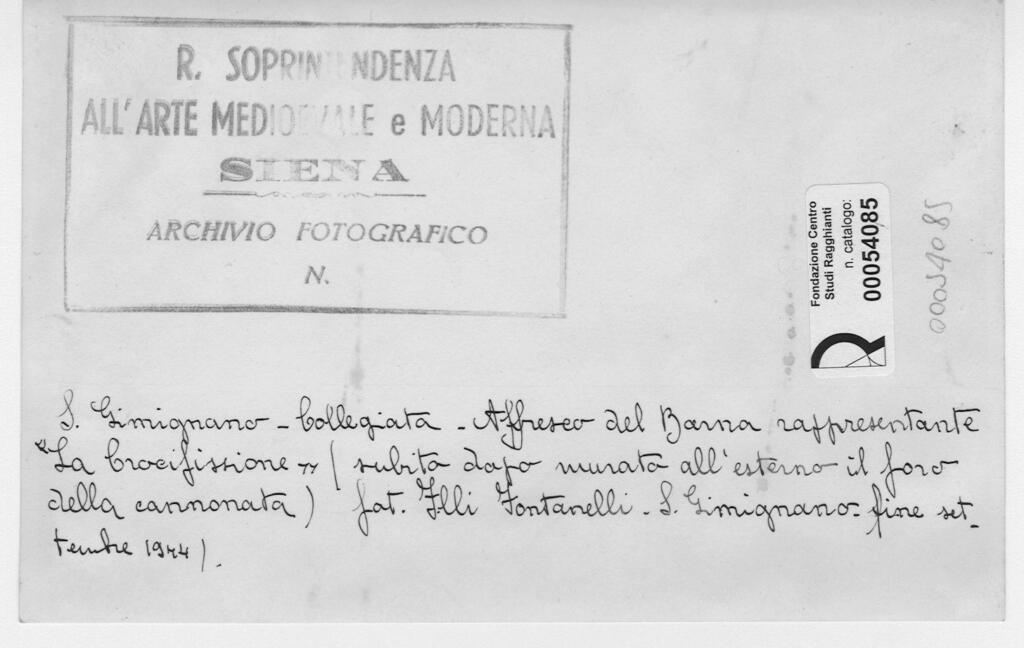 R. SOPRINTENDENZA
ALL'ARTE MEDIOEVALE e MODERNA
SIENA
ARCHIVIO FOTOGRAFICO
N.
Fondazione Centro
Studi Ragghianti
n. catalogo:
00054085
00054085
S. Gimignano - Collegiata - Affresco del Barna rappresentante
"La Crocifissione" (subito dopo murato all'esterno il foro
della cannonata) fot. Flli Fontanelli - S. Gimignano - fine set-
tembre 1944).